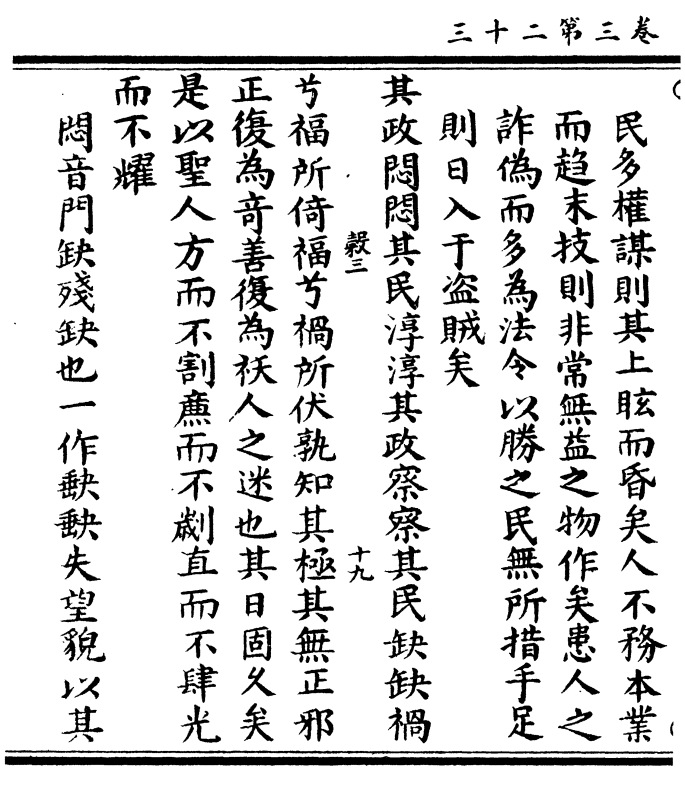 三十二第三卷
民多權謀則其上眩而昏矣人不務本業
而趋末技則非常無益之物作矣患人之
詐偽而多為法令以勝之民無所措手足
則日入于盗賊矣
其政悶悶其民淳淳其政察察其民缺缺禍
兮福所倚福兮禍所伏孰知其極其無正邪
正復為竒善復為祅人之迷也其日固久矣
是以聖人方而不割廉而不劌直而不肆光
而不耀
悶音門缺殘缺也一作𡙇𡙇失望貌以其
縠三
十九